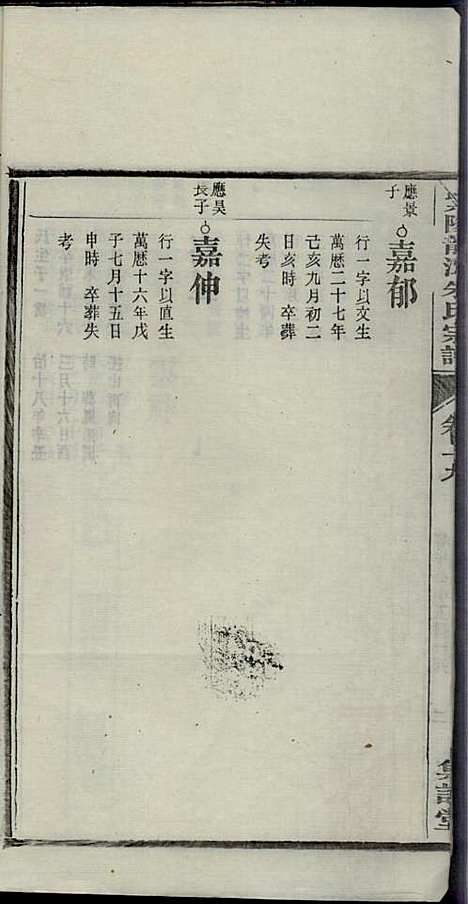 應景
子
嘉郁
行一字以文生
萬曆二十七年
己亥九月初二
日亥時 卒葬
失考
應昊
長子
嘉伸
行一字以直生
萬曆十六年戊
子七月十五日
申時 卒葬失
考
氏宗譜
卷十九